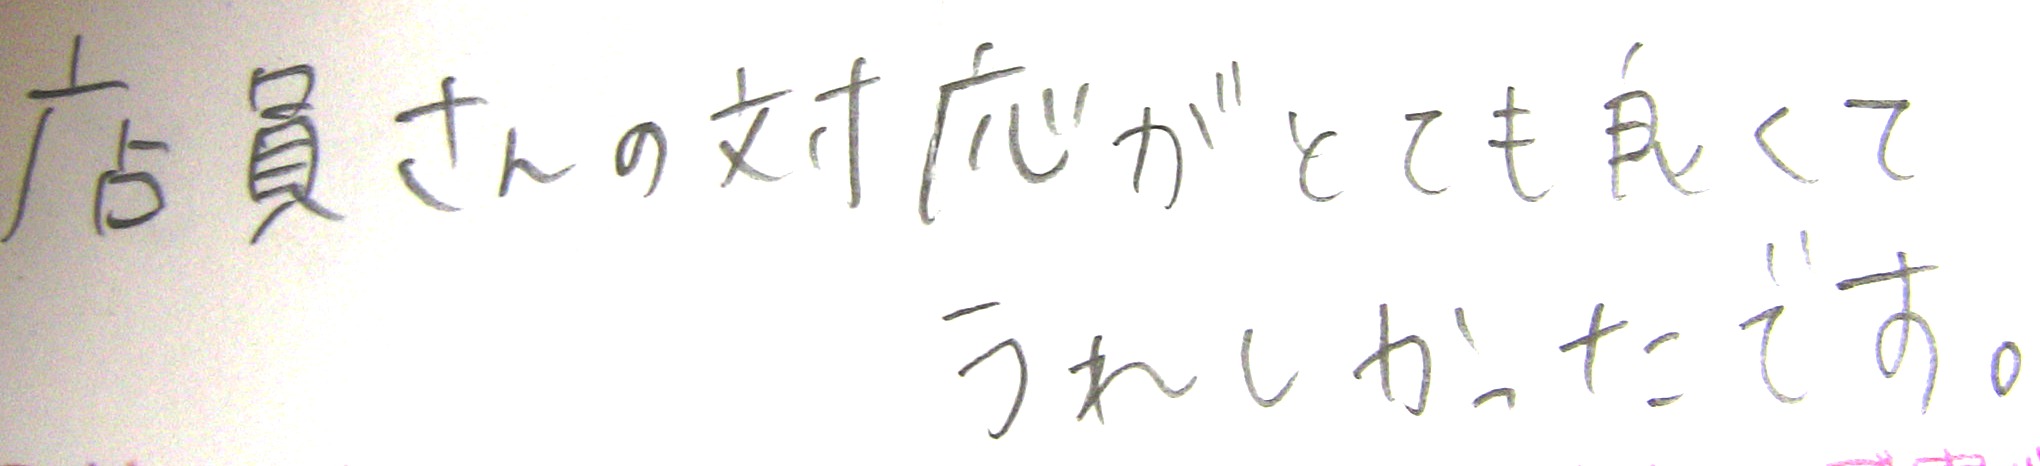 店員さんの対応がとても良くて
うれしかったです。